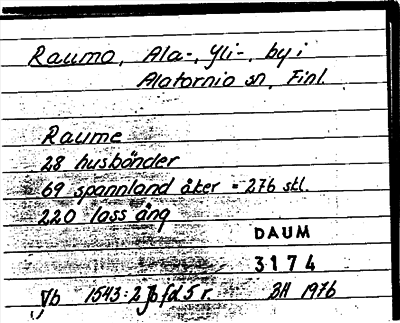 Raumo, Ala-, Yli-, by i
Alatornio sn, Finl.
Raume
28 husbönder
69 spannland åker = 276 skl.
220 lass äng
DAUM
3174
Jb 1543:2 Jb fd 5 r. BH 1976